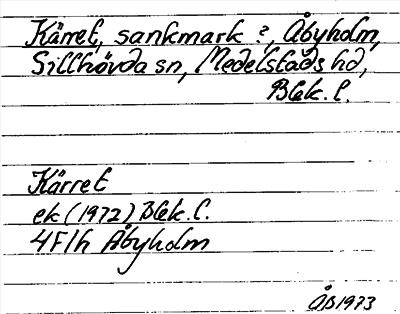 Kärret, sankmark ?, Åbyholm,
Sillhövda sn, Medelstads hd,
Blek. l.
Kärret
ek (1972) Blek. l.
4F1h Åbyholm
ÅB 1973